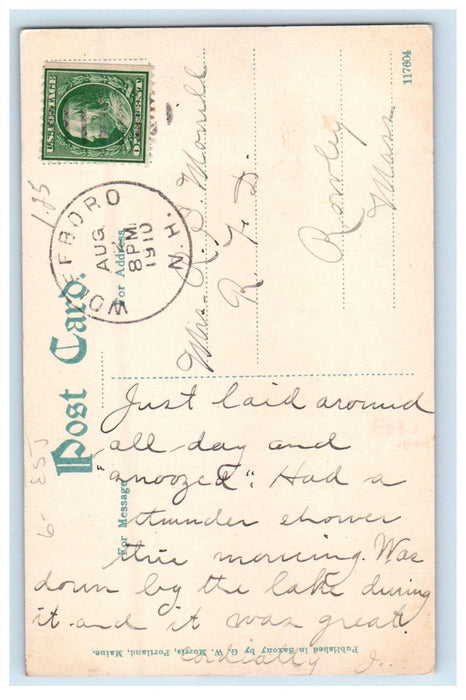 117604
U.S. POSTAGE
ONE CENT
WOLFEBORO
AUG
8 PM
1910
N.H.
1.25
Post Card.
For Address
Mrs. R. P. Morrill
R. F. D.
Rowley
Mass.
For Message
Just laid around
all day and
"snoozed". Had a
thunder shower
this morning. Was
down by the lake during
it and it was great.
Cordially J.
Published in Saxony by G. W. Morris, Portland, Maine.